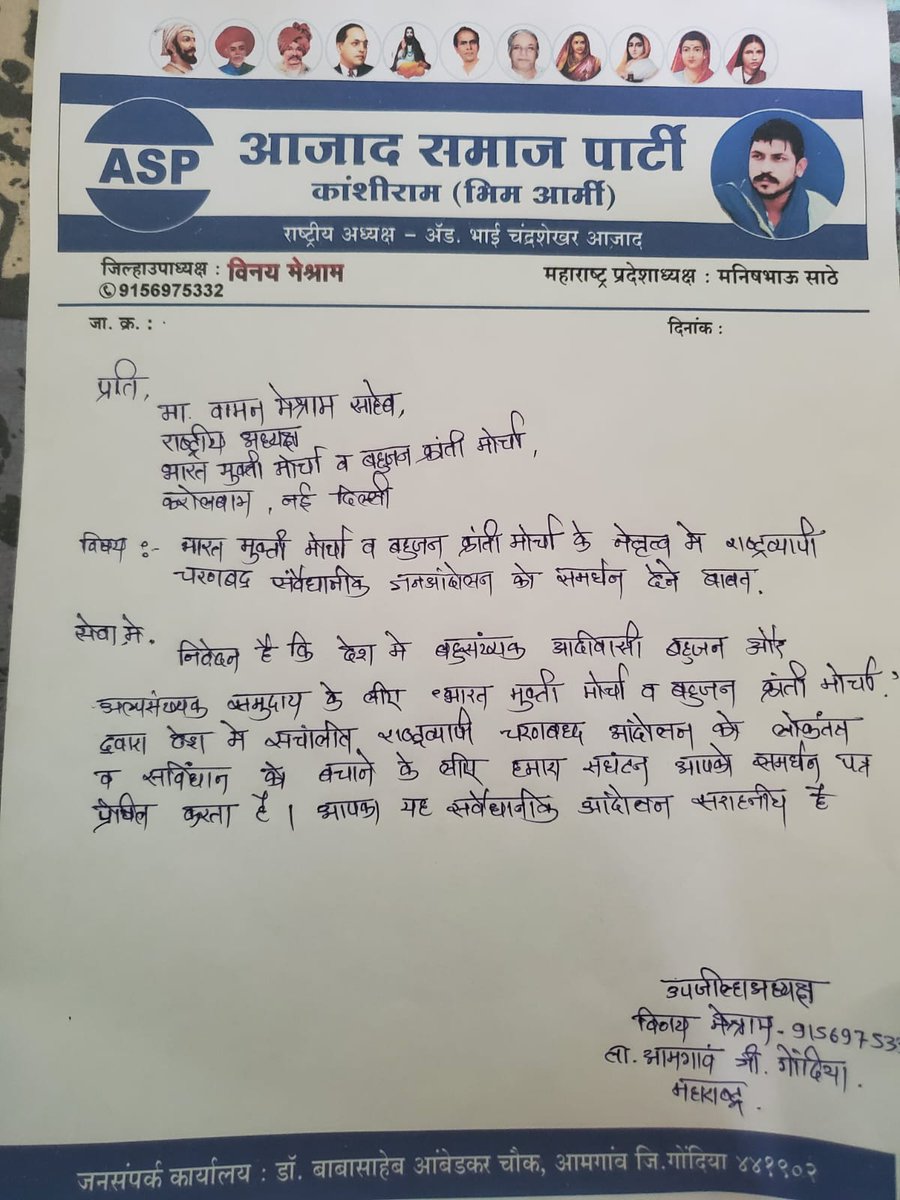 ASP
आजाद समाज पार्टी
कांशीराम (भिम आर्मी)
राष्ट्रीय अध्यक्ष – अ‍ॅड. भाई चंद्रशेखर आजाद
जिल्हाउपाध्यक्ष : विनय मेश्राम
महाराष्ट्र प्रदेशाध्यक्ष : मनिषभाऊ साठे
9156975332
जा. क्र. :
दिनांक :
प्रति,
मा. वामन मेश्राम साहेब,
राष्ट्रीय अध्यक्ष
भारत मुक्ती मोर्चा व बहुजन क्रांती मोर्चा,
करोलबाग, नई दिल्ली
विषय :- भारत मुक्ती मोर्चा व बहुजन क्रांती मोर्चा के नेतृत्व मे राष्ट्रव्यापी
चरणबद्द संवैधानीक जनआंदोलन को समर्थन देने बाबत.
सेवा मे.
निवेदन है कि देश मे बहुसंख्यक आदीवासी बहुजन और
अल्पसंख्यक समुदाय के लीए "भारत मुक्ती मोर्चा व बहुजन क्रांती मोर्चा."
द्वारा देश मे संचालीत राष्ट्रव्यापी चरणबध्द आंदोलन को लोकतंत्र
व सविंधान को बचाने के लीए हमारा संघटन आपको समर्थन पत्र
प्रेषित करता है । आपका यह सवैंधानीक आंदोलन सराहनीय है
उपजील्हाअध्यक्ष
विनय मेश्राम - 915697533
ता. आमगावं जी. गोंदिया.
महाराष्ट्र.
जनसंपर्क कार्यालय : डॉ. बाबासाहेब आंबेडकर चौक, आमगांव जि.गोंदिया ४४१९०२